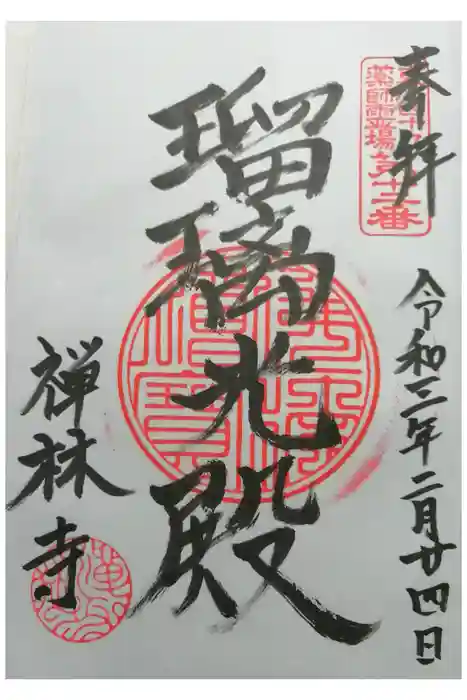 奉拝
薬師霊場第十二番
令和三年二月廿四日
瑠璃光殿
禅林寺